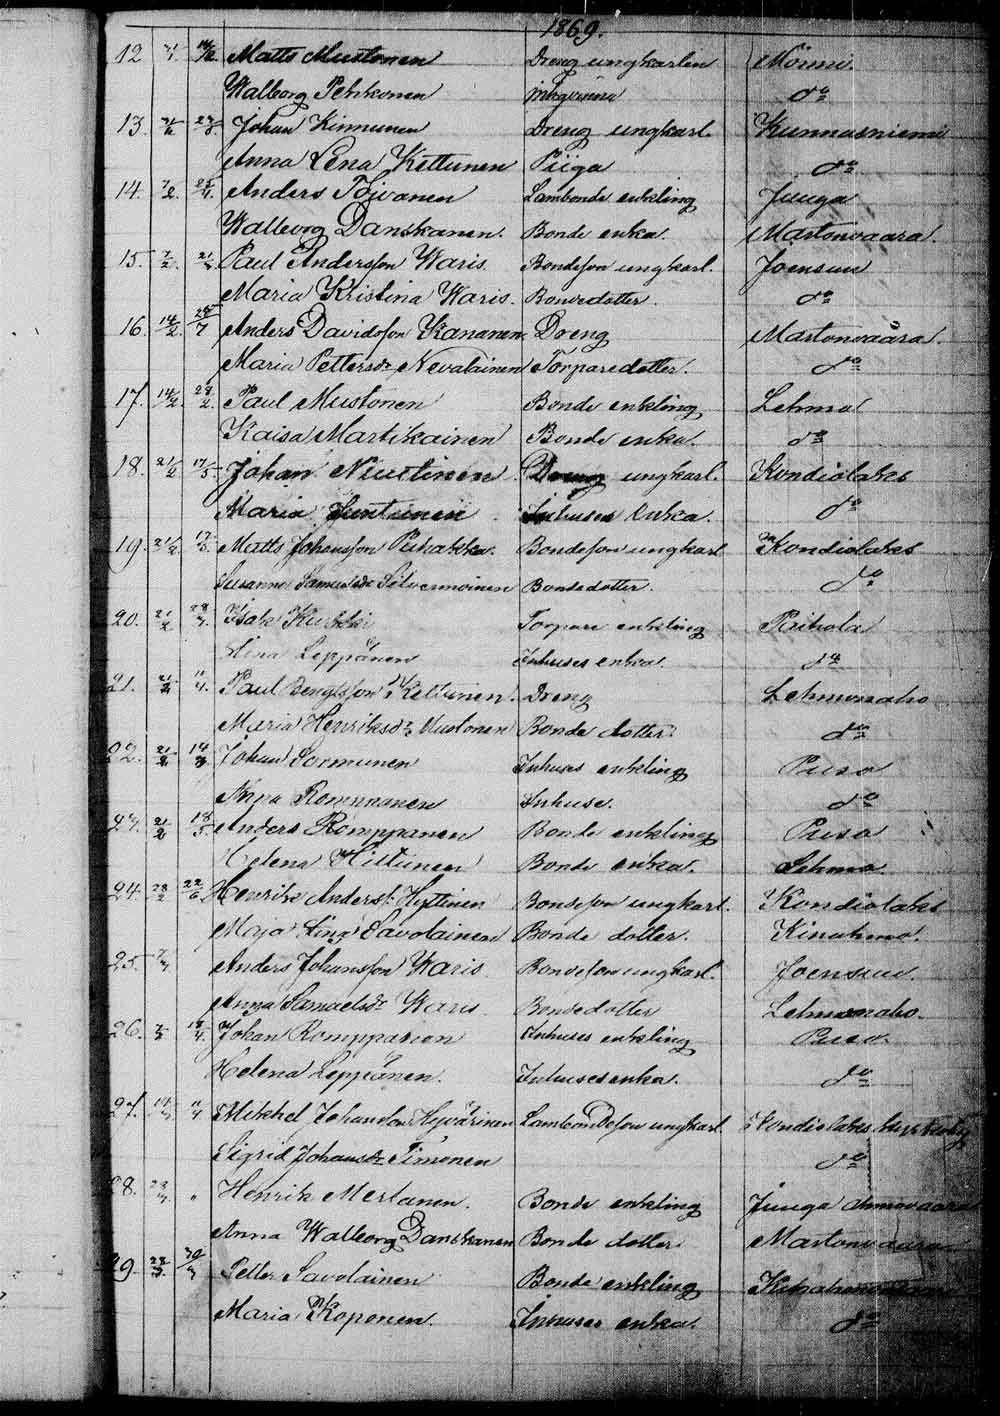 1869.
12 Matts Mustonen Dreng ungkarlen Mönni.
Walborg Pehkonen do
13. Johan Kinnunen Dreng ungkarl Kunnasniemi
Anna Lena Kettunen Piiga do
14. 7/2. Anders Toivanen Lambonde enkling Juuga
Walborg Danskanen. Bonde enka. Martonvaara.
15. 7/2. Paul Andersson Waris. Bondeson ungkarl. Joensuu
Maria Kristina Waris. Bondedotter do
16. 14/2 Anders Davidsson Kananen. Dreng Martonvaara.
Maria Pettersdr Nevalainen Torparedotter. do
17. 14/2. 28/2. Paul Mustonen Bonde enkling Lehmo
Kaisa Martikainen Bonde enka do
18. 21/2 17/5. Johan Niuttinen Dreng ungkarl. Kondiolaks
Maria Inhuses Enka. do
19. 21/2. Matts Johansson Bondeson ungkarl Kondiolaks
Susanna Samuelsdr Silvennoinen Bondedotter. do
20. 21/2 Isak Kurkki Torpare enkling Paihola
Stina Leppänen Inhuses enka. do
21. 21/2 11/4. Paul Bengtsson Keltunen. Dreng Lehmonaho
Maria Henriksdr Mustonen Bonde dotter. do
22. 21/2 Johan Sormunen Inhuses enkling Puso
Anna Romppanen Inhuse. do
23. 21/2 18/5 Anders Romppanen Bonde enkling Puso
Helena Hiltunen Bonde enka. Lehmo
24. 28/2 22/6 Henrik Anderss. Hyttinen Bondeson ungkarl. Kondiolaks
Maja Stina Savolainen Bonde dotter. Kinahmo.
25. Anders Johansson Waris Bondeson ungkarl. Joensuu.
Anna Samuelsdr Waris Bondedotter Lehmonaho.
26. 18/4. Johan Romppanen Inhuses enkling Puso.
Helena Leppänen. Inhuses enka. do
27. 14/3 11/4 Mikkel Johansson Hyvärinen Lambondeson ungkarl. Kondiolaks kyrkoby
Sigrid Johansdr Timonen do
28. 28/3. " Henrik Mertanen. Bonde enkling Juuga Ahmovaara
Anna Walborg Danskanen Bonde dotter. Martonvaara
29. Petter Savolainen Bonde enkling
Maria Koponen. Inhuses enka. do